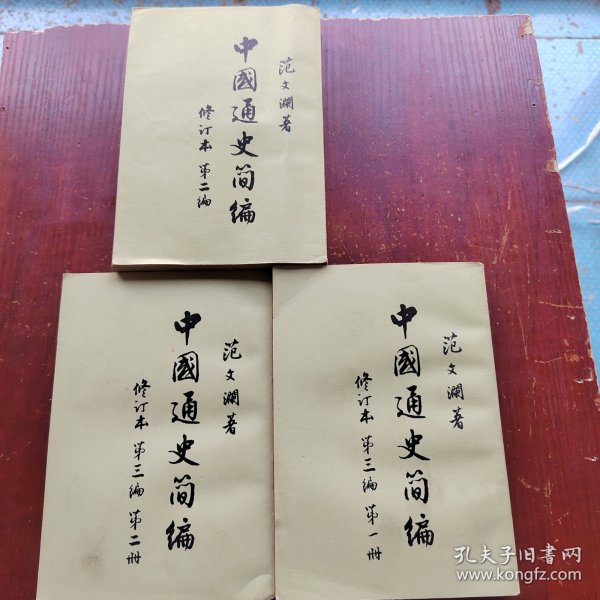 范文瀾著
中國通史简编
修订本 第二编
范文瀾著
中國通史简编
修订本 第三编 第二册
范文瀾著
中國通史简编
修订本 第三编 第一册
孔夫子旧书网
www.kongfz.com